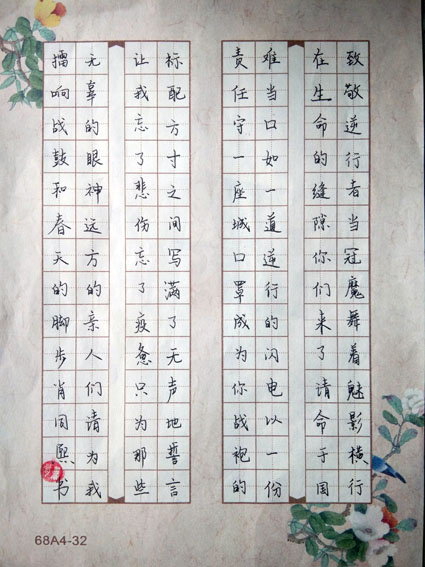 致敬逆行者当冠魔舞着魅影横行
在生命的缝隙你们来了请命于国
难当口如一道逆行的闪电以一份
责任守一座城口罩成为你战袍的
标配方寸之间写满了无声地誓言
让我忘了悲伤忘了疫惫只为那些
无辜的眼神远方的亲人们请为我
擂响战鼓和春天的脚步肖同熙书
68A4-32